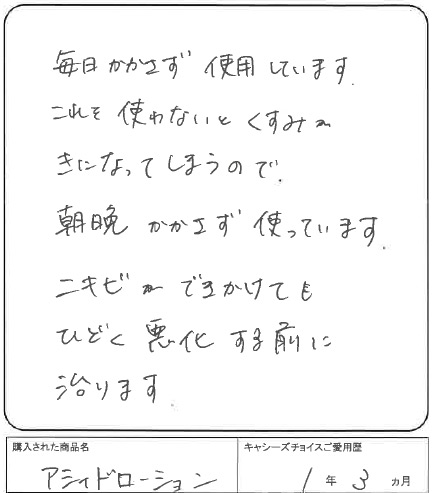 毎日かかさず使用しています.
これを使わないとくすみが
きになってしまうので.
朝晩かかさず使っています.
ニキビができかけても
ひどく悪化する前に
治ります.
購入された商品名
キャシーズチョイスご愛用歴
アシィドローション
1年3ヵ月